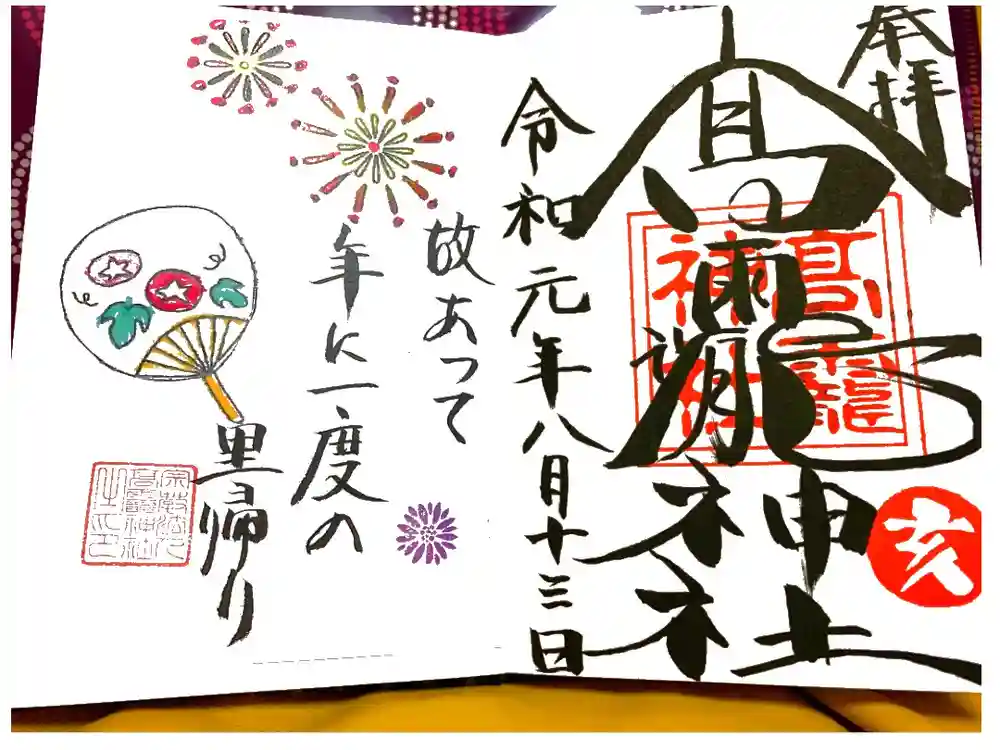 奉拝
高靇神社
高靇
神社
亥
令和元年八月十三日
故あって
年に一度の
里帰り